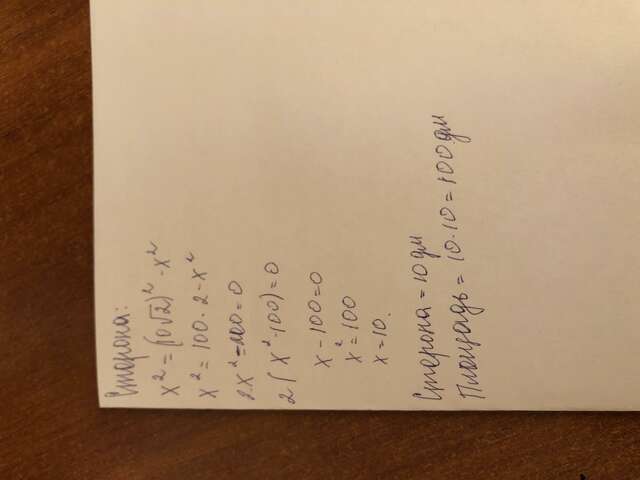 Сторона:
x² = (10√2)² - x²
x² = 100 · 2 - x²
2x² = 200 = 0
2(x² - 100) = 0
x - 100 = 0
x² = 100
x = 10.
Сторона = 10 дм
Площадь = 10 · 10 = 100 дм